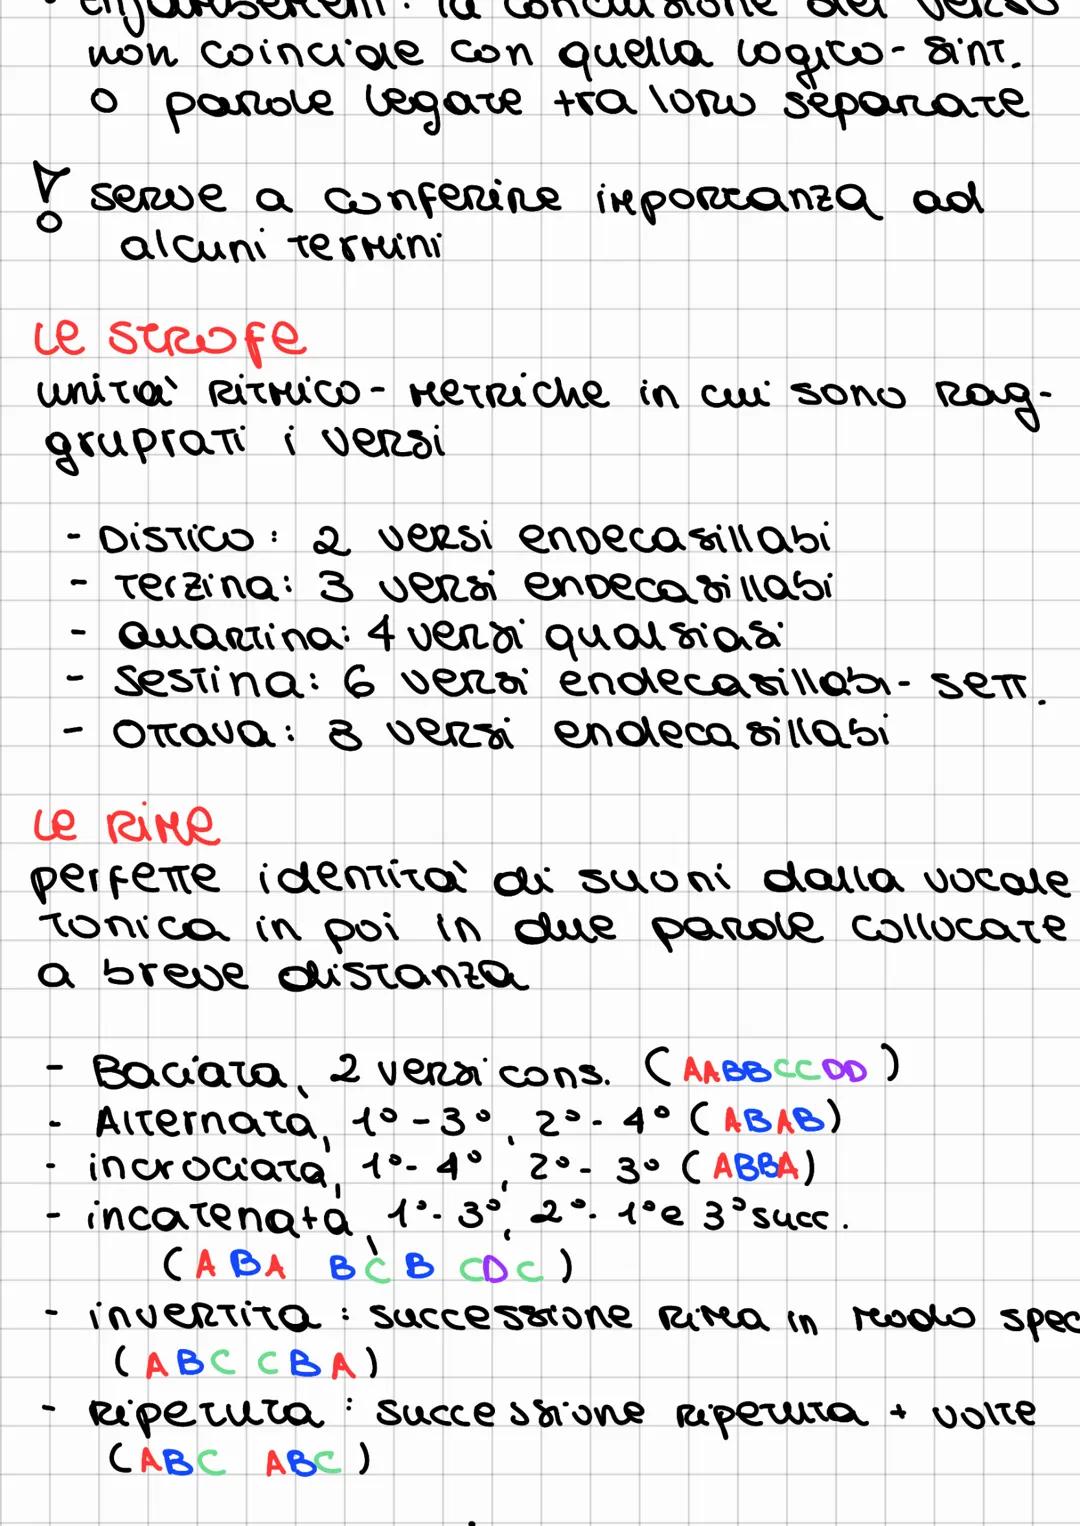 • enjambement: la conclusione del verso
non coincide con quella logico-sint.
o parole legate tra loro separate
! serve a conferire importanza ad
alcuni termini
le strofe
unità ritmico-metriche in cui sono rag-
gruppati i versi
- Distico: 2 versi endecasillabi
- Terzina: 3 versi endecasillabi
- Quartina: 4 versi qualsiasi
- Sestina: 6 versi endecasillabi-sett.
- Ottava: 8 versi endecasillabi
le rime
perfette identità di suoni dalla vocale
tonica in poi in due parole collocate
a breve distanza
- Baciata, 2 versi cons. (AABBCCDD)
- Alternata, 1°-3°, 2°-4° (ABAB)
- incrociata, 1°-4°, 2°-3° (ABBA)
- incatenata, 1°-3°, 2°-1°e 3°succ.
(ABA BCB CDC)
- invertita: successione rima in modo spec
(ABC CBA)
- Ripetuta: successione ripetuta + volte
(ABC ABC)